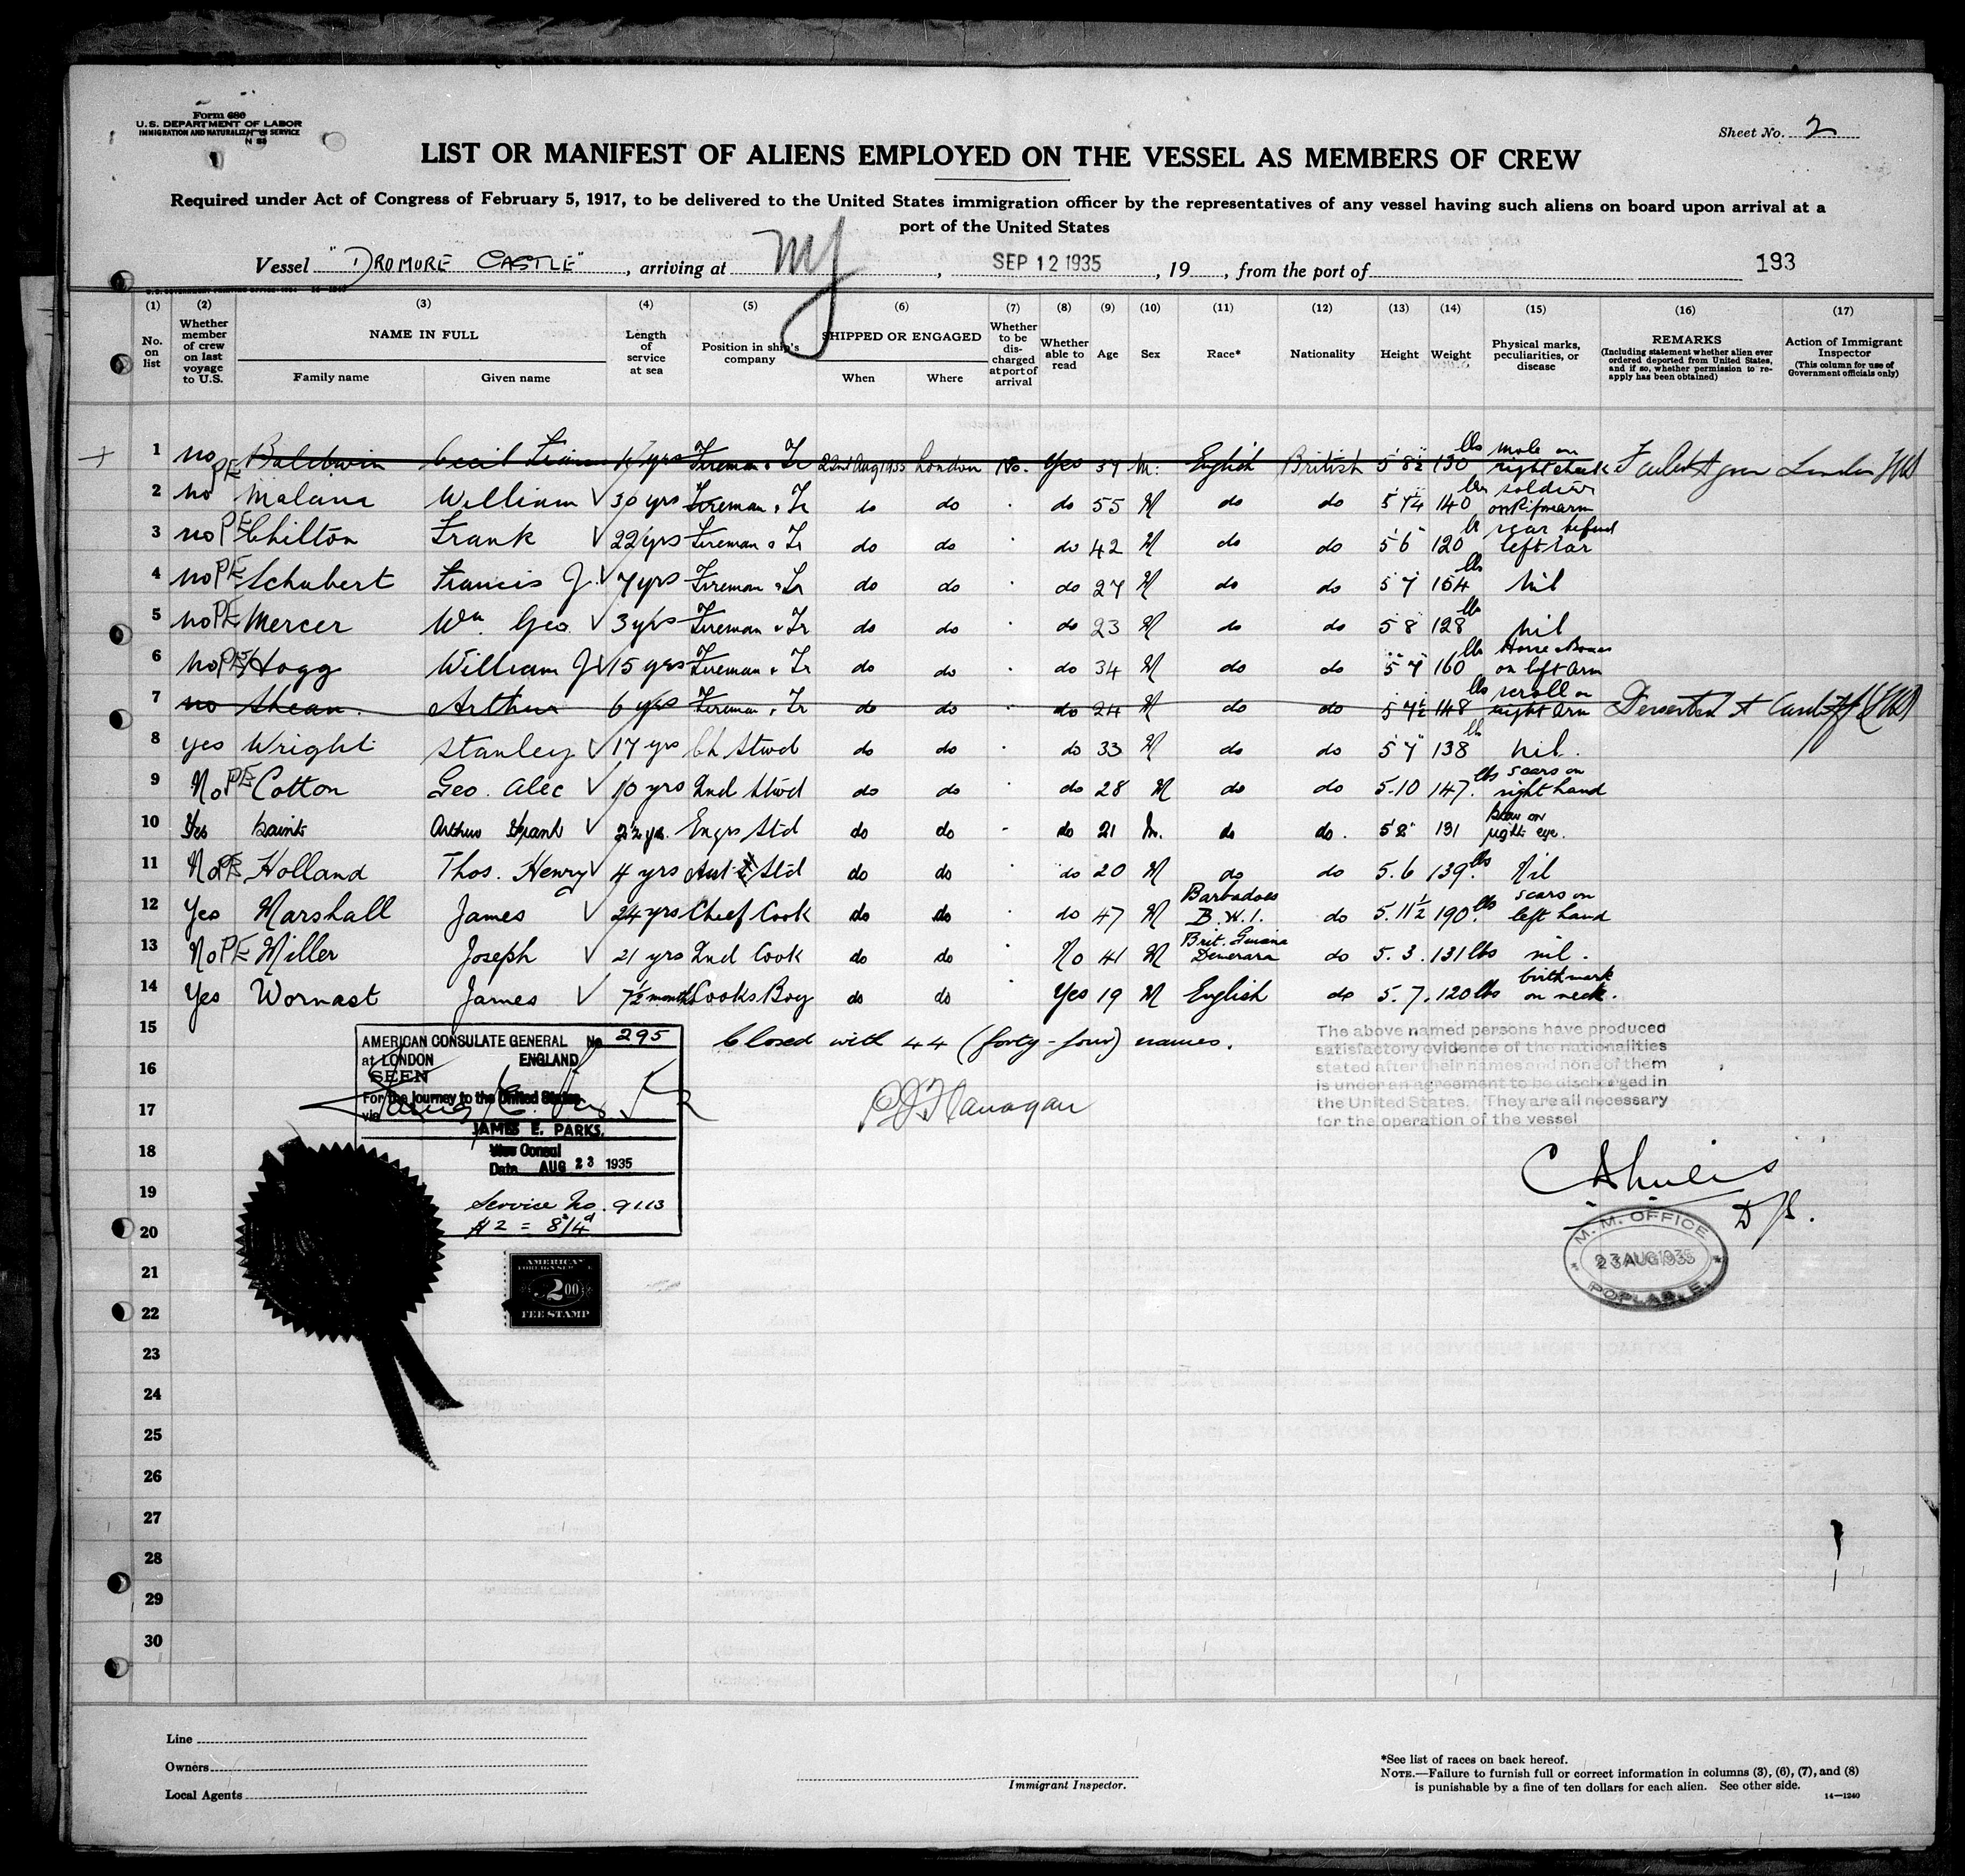 Form 680
U.S. DEPARTMENT OF LABOR
IMMIGRATION AND NATURALIZATION SERVICE
Sheet No. 2
LIST OR MANIFEST OF ALIENS EMPLOYED ON THE VESSEL AS MEMBERS OF CREW
Required under Act of Congress of February 5, 1917, to be delivered to the United States immigration officer by the representatives of any vessel having such aliens on board upon arrival at a
port of the United States
Vessel "DROMORE CASTLE", arriving at NY, SEP 12 1935, 19, from the port of 193
(1) (2) (3) (4) (5) (6) (7) (8) (9) (10) (11) (12) (13) (14) (15) (16) (17)
No. on list
Whether member of crew on last voyage to U.S.
NAME IN FULL
Family name
Given name
Length of service at sea
Position in ship's company
SHIPPED OR ENGAGED
When
Where
Whether to be discharged at port of arrival
Whether able to read
Age
Sex
Race*
Nationality
Height
Weight
Physical marks, peculiarities, or disease
REMARKS
(Including statement whether alien ever ordered deported from United States, and if so, whether permission to reapply has been obtained)
Action of Immigrant Inspector
(This column for use of Government officials only)
1 no PE Baldwin Cecil yrs Fireman & Tr 22nd Aug 1935 London No. Yes 37 M. English British 5 8½ 130 lbs mole on right cheek Failed to join London
2 no Malana William 30 yrs Fireman & Tr do do do 55 M do do 5 7½ 140 lbs soldier on R. forearm
3 no PE Chilton Frank 22 yrs Fireman & Tr do do do 42 M do do 5 6 120 lbs scar behind left ear
4 no PE Schubert Francis J. 7 yrs Fireman & Tr do do do 27 M do do 5 7 154 lbs Nil
5 no PE Mercer Wm Geo 3 yrs Fireman & Tr do do do 23 M do do 5 8 128 lbs Nil
6 no PE Hogg William J 15 yrs Fireman & Tr do do do 34 M do do 5 7 160 lbs on left arm
7 no Shean Arthur 6 yrs Fireman & Tr do do do 24 M do do 5 7½ 148 lbs scroll on right arm Deserted at Cardiff
8 yes Wright Stanley 17 yrs Ch Stwd do do do 33 M do do 5 7 138 lbs nil.
9 No PE Cotton Geo. Alec 10 yrs 2nd Stwd do do do 28 M do do 5.10 147 lbs scars on right hand
10 Yes Saints Arthur Frank 2½ yrs. Engrs Std do do do 21 M. do do. 5 8 131 Scar on right eye.
11 No PE Holland Thos. Henry 4 yrs Asst Std do do do 20 M do do 5.6 139 lbs Nil
12 Yes Marshall James 24 yrs Chief Cook do do do 47 M Barbadoes B.W.I. do 5.11½ 190 lbs scars on left hand
13 No PE Miller Joseph 21 yrs 2nd Cook do do No 41 M Brit. Guiana Demerara do 5.3. 131 lbs nil.
14 Yes Wornast James 7½ months Cooks Boy do do Yes 19 M English do 5.7. 120 lbs birthmark on neck.
15 Closed with 44 (forty-four) names.
16
17
18
19
20
21
22
23
24
25
26
27
28
29
30
AMERICAN CONSULATE GENERAL No 295
at LONDON ENGLAND
SEEN
For the journey to the United States
via
JAMES E. PARKS.
Vice Consul
Date AUG 23 1935
Service No. 9113
$2 = 8/4d
AMERICAN
FOREIGN SERVICE
2.00
FEE STAMP
The above named persons have produced
satisfactory evidence of the nationalities
stated after their names and none of them
is under an agreement to be discharged in
the United States. They are all necessary
for the operation of the vessel
M. M. OFFICE
23 AUG 1935
POPLAR, E.
Line
Owners
Local Agents
Immigrant Inspector.
*See list of races on back hereof.
NOTE.—Failure to furnish full or correct information in columns (3), (6), (7), and (8)
is punishable by a fine of ten dollars for each alien. See other side.
14—1240